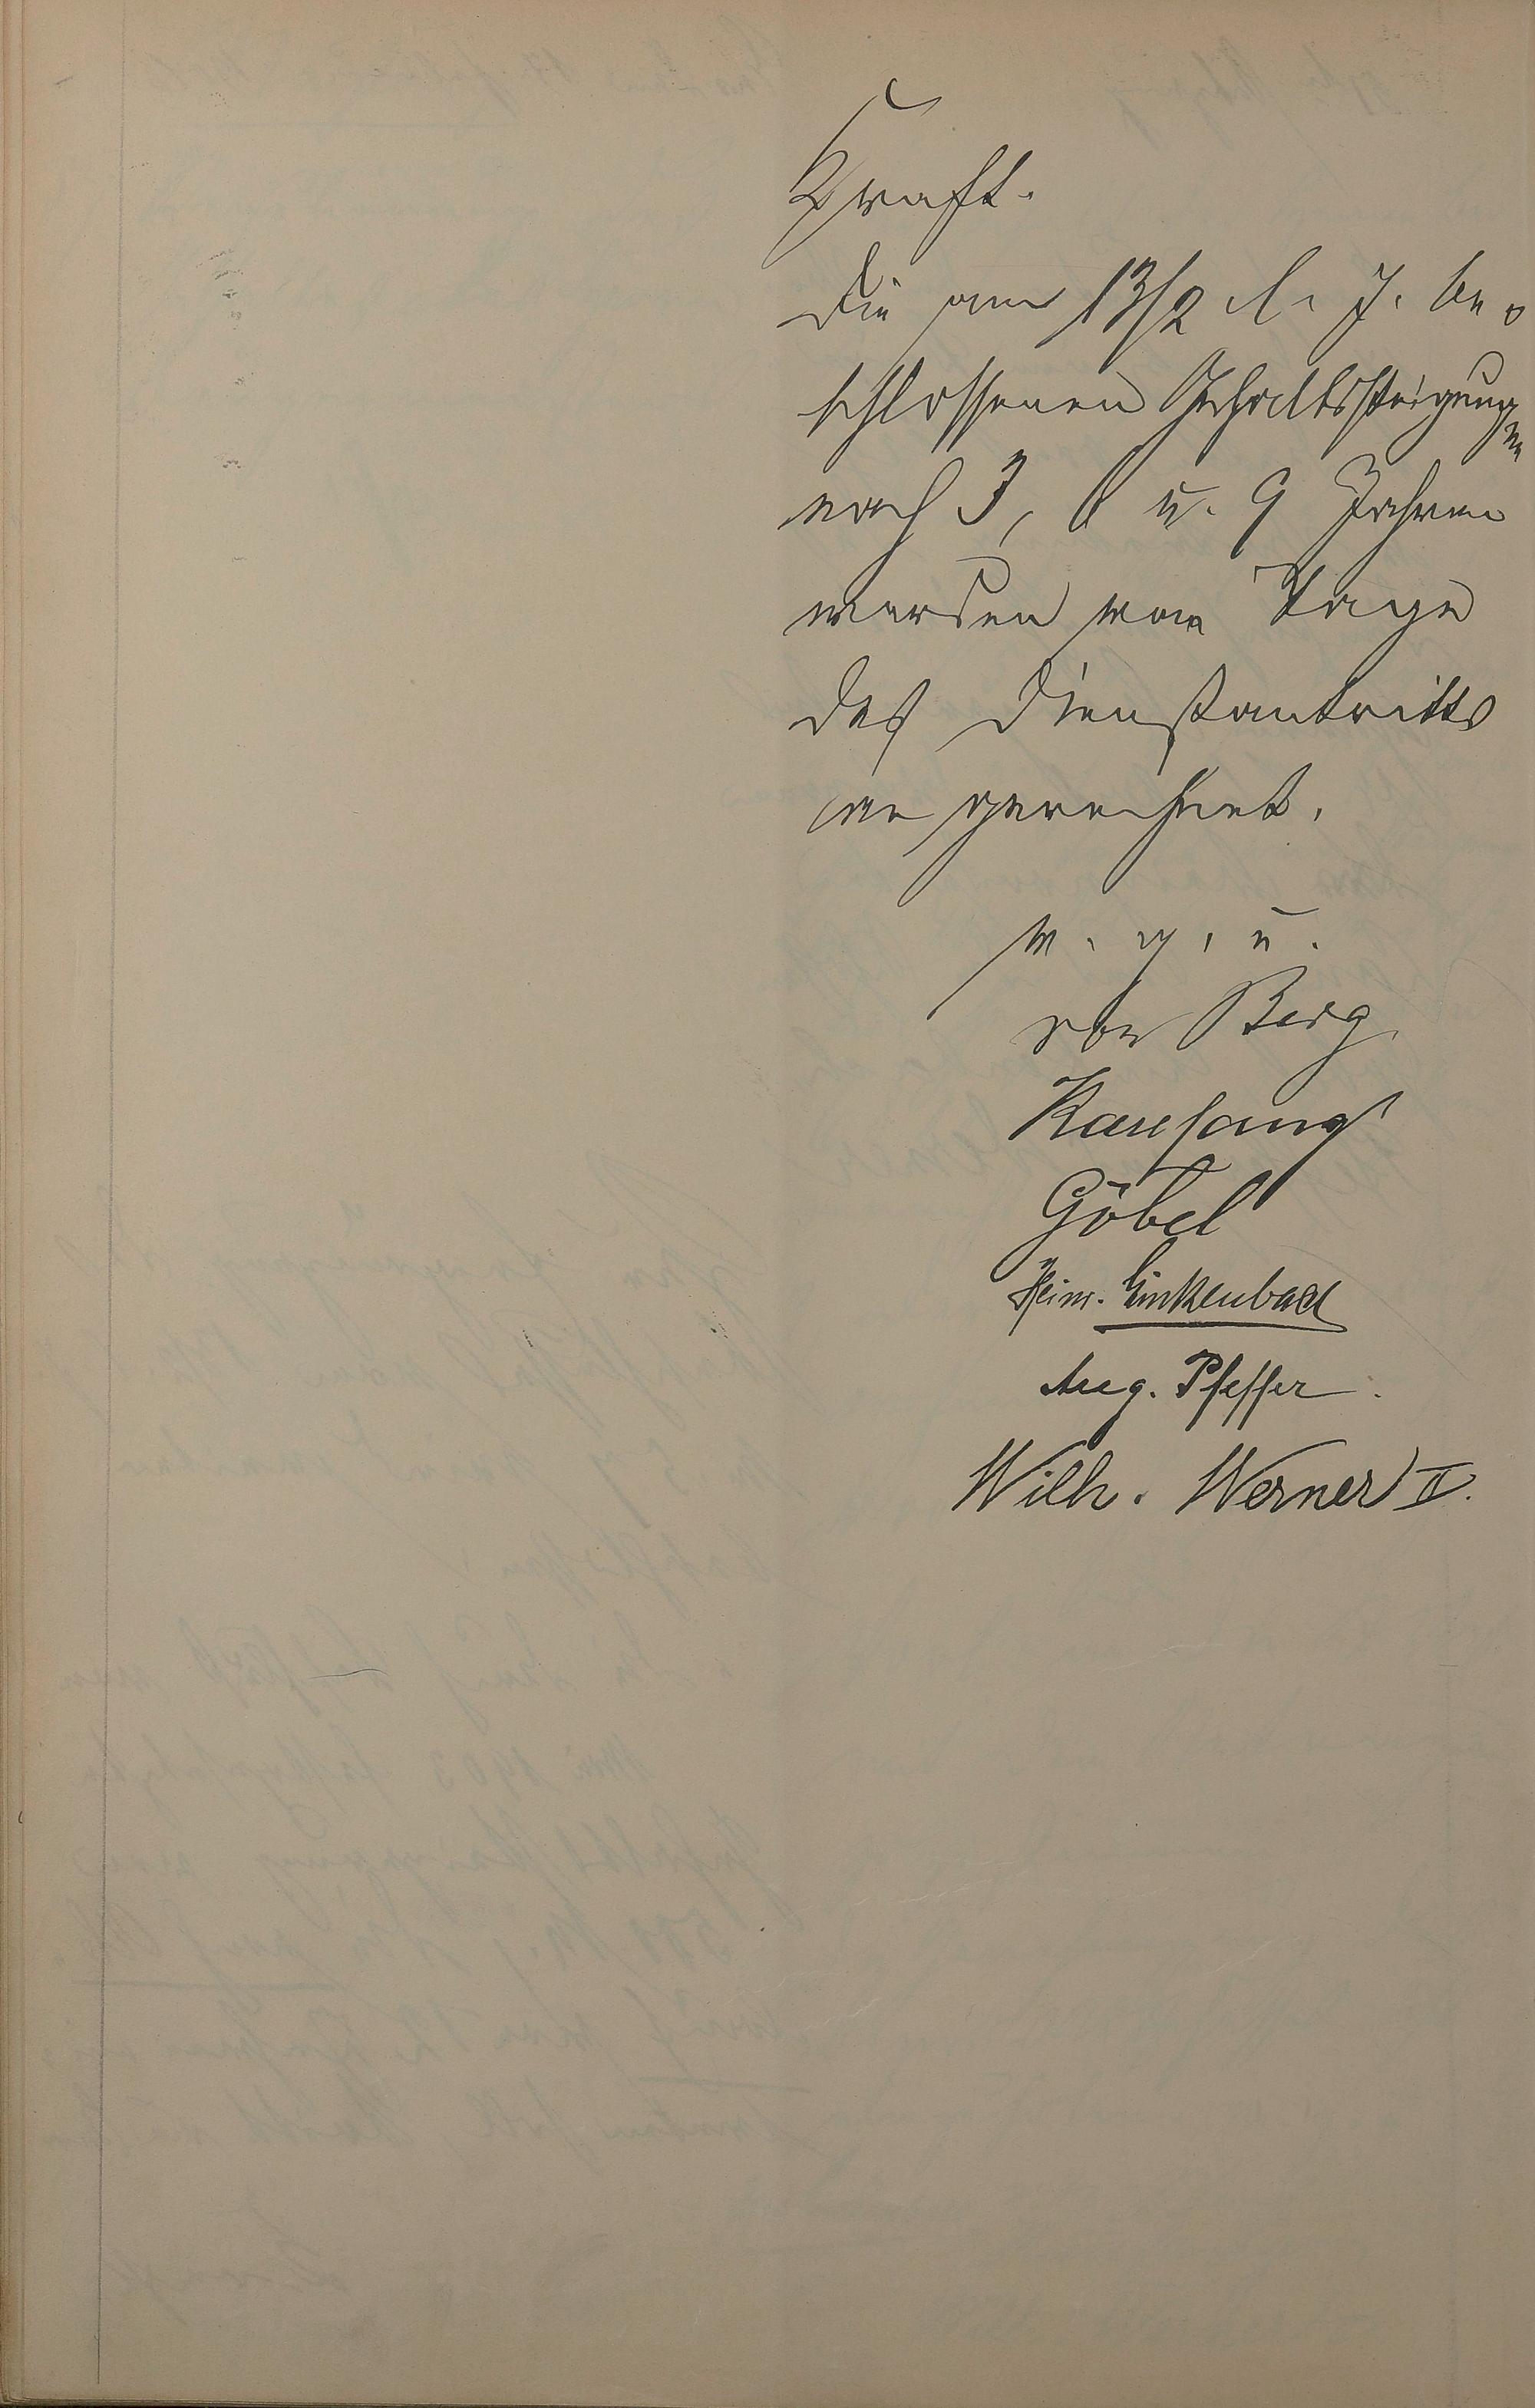 Kraft.
Die am 13/2 l. J. be-
schlossenen Gehaltssteigungen
nach 3, 6 u. 9 Jahren
werden vom Tage
des Dienstantritts
an gerechnet.
v. g. u.
von Berg
Göbel
Heinr. Linkenbach
Aug. Pfeffer.
Wilh. Werner II.